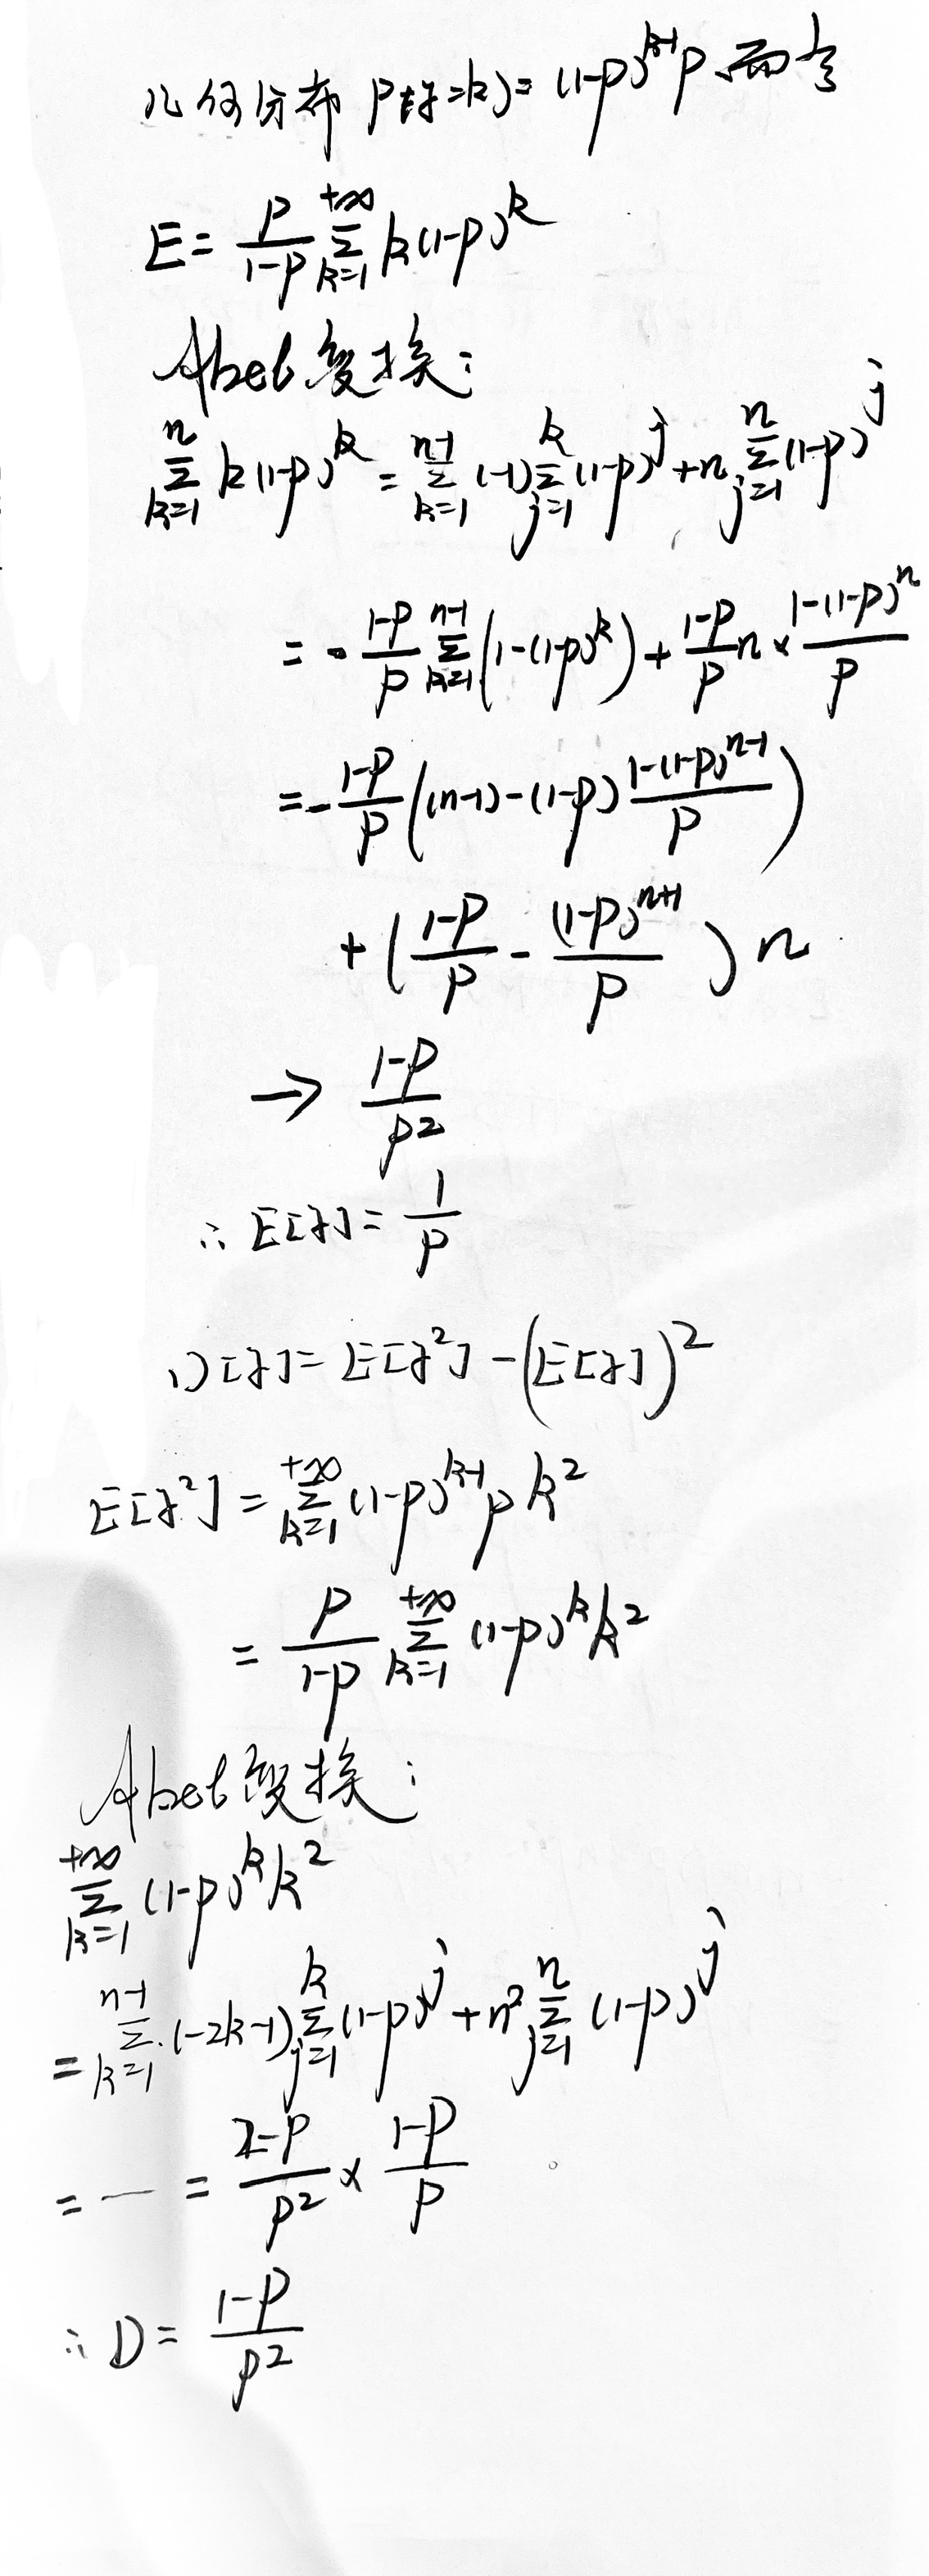 几何分布 P(ξ=k)=(1-p)^{k-1}p 而言
E = \frac{p}{1-p} \sum_{k=1}^{+∞} k(1-p)^k
Abel变换:
\sum_{k=1}^{n} k(1-p)^k = \sum_{k=1}^{n-1} (-1) \sum_{j=1}^{k} (1-p)^j + n \sum_{j=1}^{n} (1-p)^j
= - \frac{1-p}{p} \sum_{k=1}^{n-1} (1-(1-p)^k) + \frac{1-p}{p} n × \frac{1-(1-p)^n}{p}
= - \frac{1-p}{p} ((n-1)-(1-p) \frac{1-(1-p)^{n-1}}{p})
+ (\frac{1-p}{p} - \frac{(1-p)^{n+1}}{p}) n
→ \frac{1-p}{p^2}
∴ E[ξ] = \frac{1}{p}
D[ξ] = E[ξ^2] - (E[ξ])^2
E[ξ^2] = \sum_{k=1}^{+∞} (1-p)^{k-1} p k^2
= \frac{p}{1-p} \sum_{k=1}^{+∞} (1-p)^k k^2
Abel变换:
\sum_{k=1}^{+∞} (1-p)^k k^2
= \sum_{k=1}^{n-1} (-2k-1) \sum_{j=1}^{k} (1-p)^j + n^2 \sum_{j=1}^{n} (1-p)^j
= — = \frac{2-p}{p^2} × \frac{1-p}{p}
∴ D = \frac{1-p}{p^2}